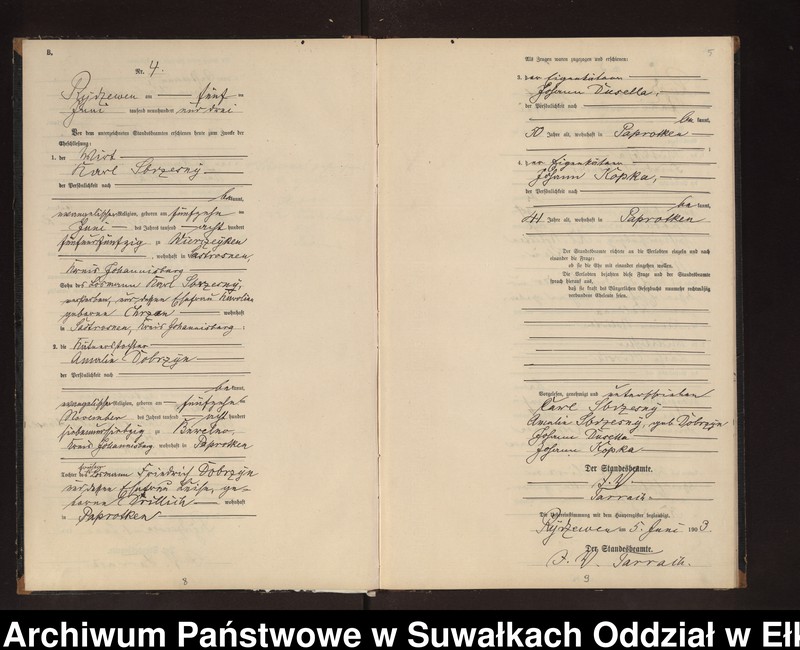 B.
Nr. 4.
Rydzewen am fünf ten
Juni tausend neunhundert und drei
Vor dem unterzeichneten Standesbeamten erschienen heute zum Zwecke der
Eheschließung:
1. der Wirt
Karl
der Persönlichkeit nach
bekannt,
evangelischer Religion, geboren am fünfzehn ten
Juni des Jahres tausend acht hundert
fünfundfünfzig zu
, wohnhaft in
Kreis Johannisburg
Sohn des Losmann Karl
verstorben, und dessen Ehefrau Karoline
geborene Chrzan wohnhaft
in Kreis Johannisburg.
2. die Kätnerstochter
Amalie Dobrzyn
der Persönlichkeit nach
bekannt,
evangelischer Religion, geboren am fünfzehn ten
November des Jahres tausend acht hundert
siebenundsiebzig zu
Kreis Johannisburg wohnhaft in Paprotken
Tochter des Losmann Friedrich Dobrzyn
und dessen Ehefrau Luise, ge-
borene Trillich wohnhaft
in Paprotken
8
5
Als Zeugen waren zugezogen und erschienen:
3. der Eigenkätner
Johann Dusella,
der Persönlichkeit nach
bekannt,
50 Jahre alt, wohnhaft in Paprotken
;
4. der Eigenkätner
Johann Kopka,
der Persönlichkeit nach
bekannt,
44 Jahre alt, wohnhaft in Paprotken
Der Standesbeamte richtete an die Verlobten einzeln und nach
einander die Frage:
ob sie die Ehe mit einander eingehen wollen.
Die Verlobten bejahten diese Frage und der Standesbeamte
sprach hierauf aus,
daß sie kraft des Bürgerlichen Gesetzbuchs nunmehr rechtmäßig
verbundene Eheleute seien.
Vorgelesen, genehmigt und unterschrieben
Karl
Amalie geb. Dobrzyn
Johann Dusella
Johann Kopka
Der Standesbeamte.
J. V.
Jarrach.
Die Übereinstimmung mit dem Hauptregister beglaubigt.
Rydzewen am 5. Juni 1903.
Der Standesbeamte.
J. V. Jarrach.
9
Archiwum Państwowe w Suwałkach Oddział w Ełk